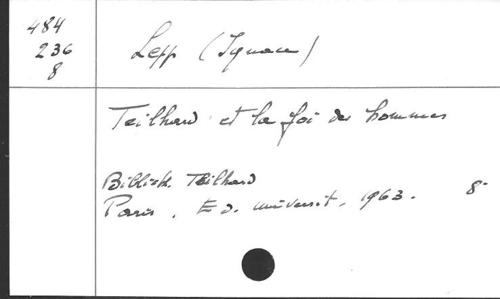 484
236
8
Lepp (Ignace)
Teilhard et la foi des hommes
Biblioth. Teilhard
Paris, Ed. universit., 1963. 8°